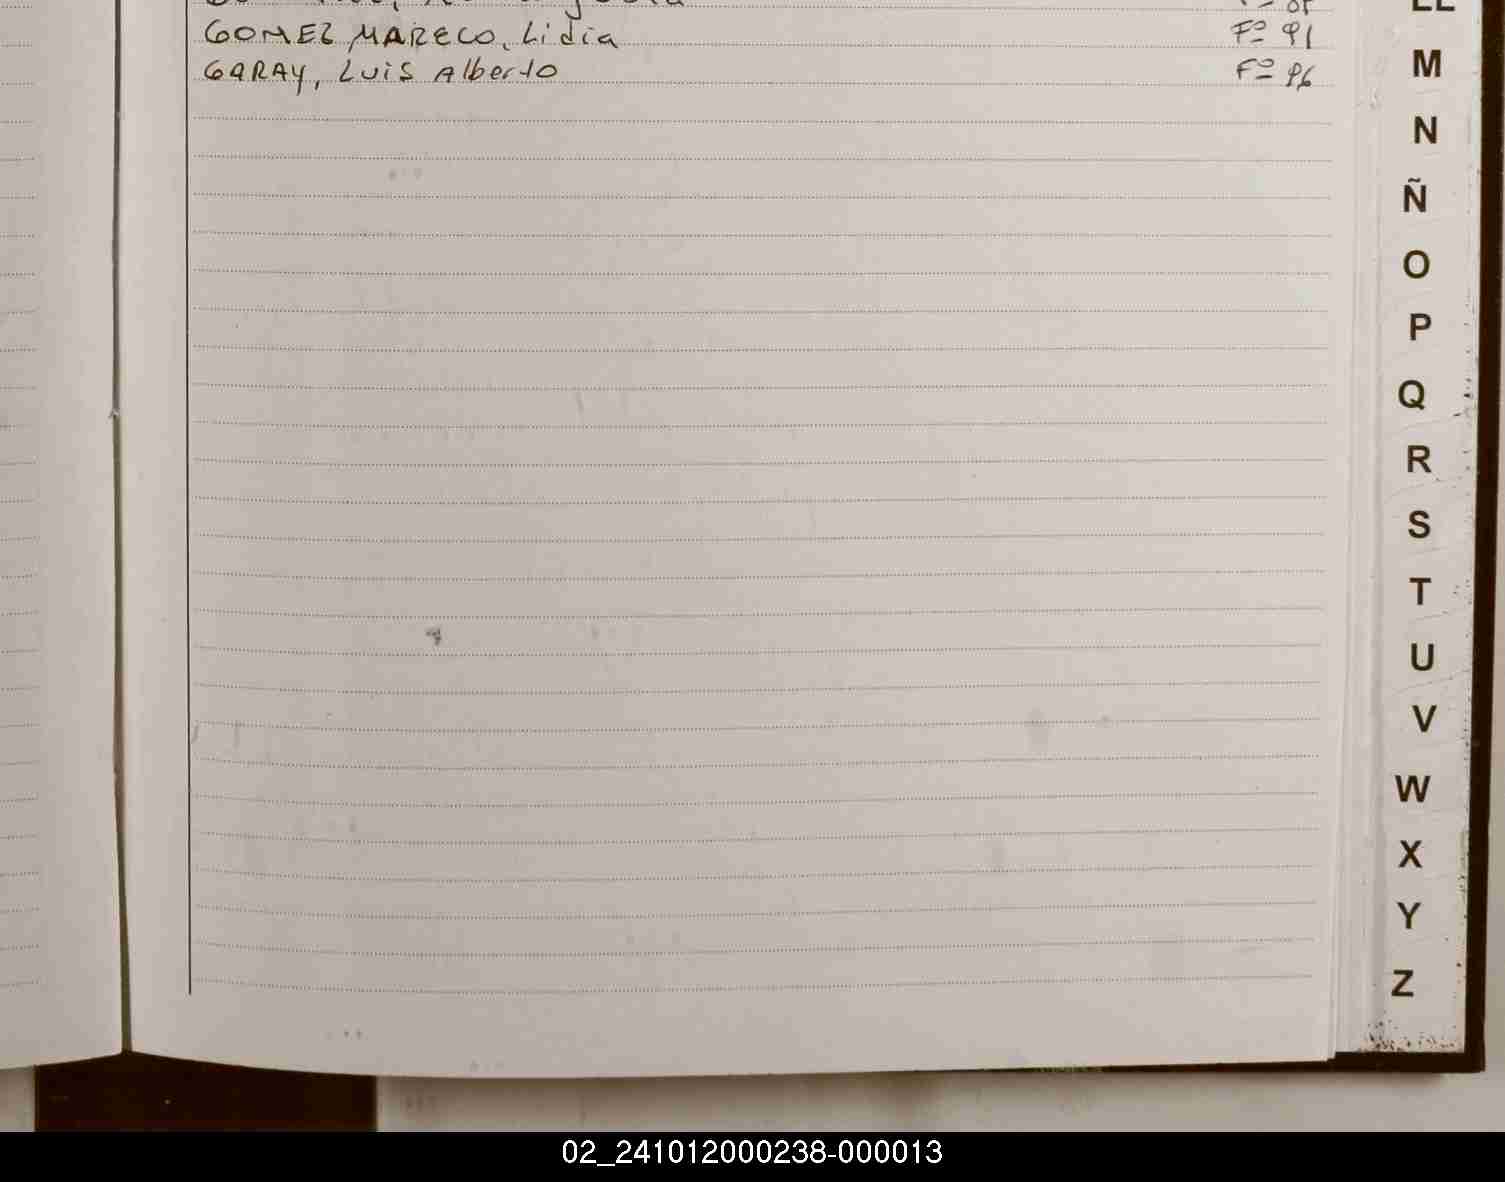 GOMEZ MARECO, Lidia Fº 91
GARAY, LUIS Alberto Fº 96
LL
M
N
Ñ
O
P
Q
R
S
T
U
V
W
X
Y
Z
02_241012000238-000013